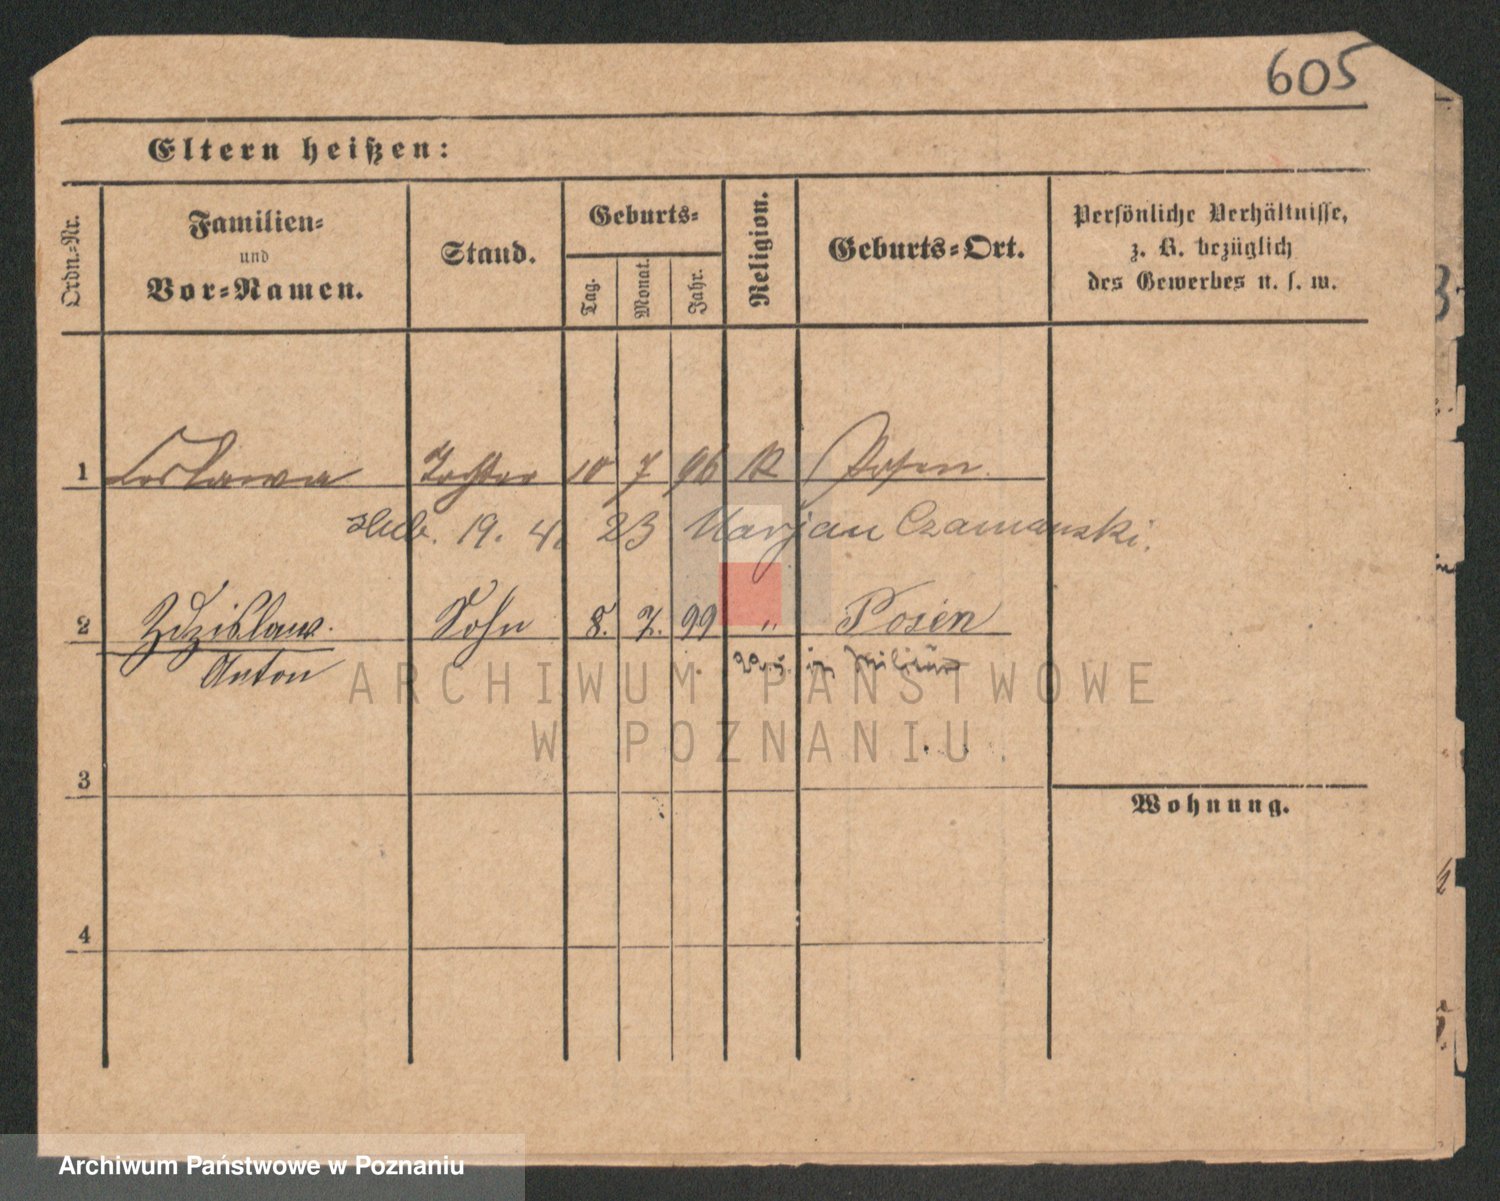 605
Eltern heißen:
Ordn.-Nr.
Familien-
und
Vor-Namen.
Stand.
Geburts-
Tag.
Monat.
Jahr.
Religion.
Geburts-Ort.
Persönliche Verhältnisse,
z. B. bezüglich
des Gewerbes u. s. w.
1 Tochter 10 7 96 K Posen
19. 4. 23 Marjan Czamanski.
2 Zdzislaw. Sohn 8. 7. 99 " Posen
Anton in Militär
3
Wohnung.
4
ARCHIWUM PAŃSTWOWE
W POZNANIU.
Archiwum Państwowe w Poznaniu